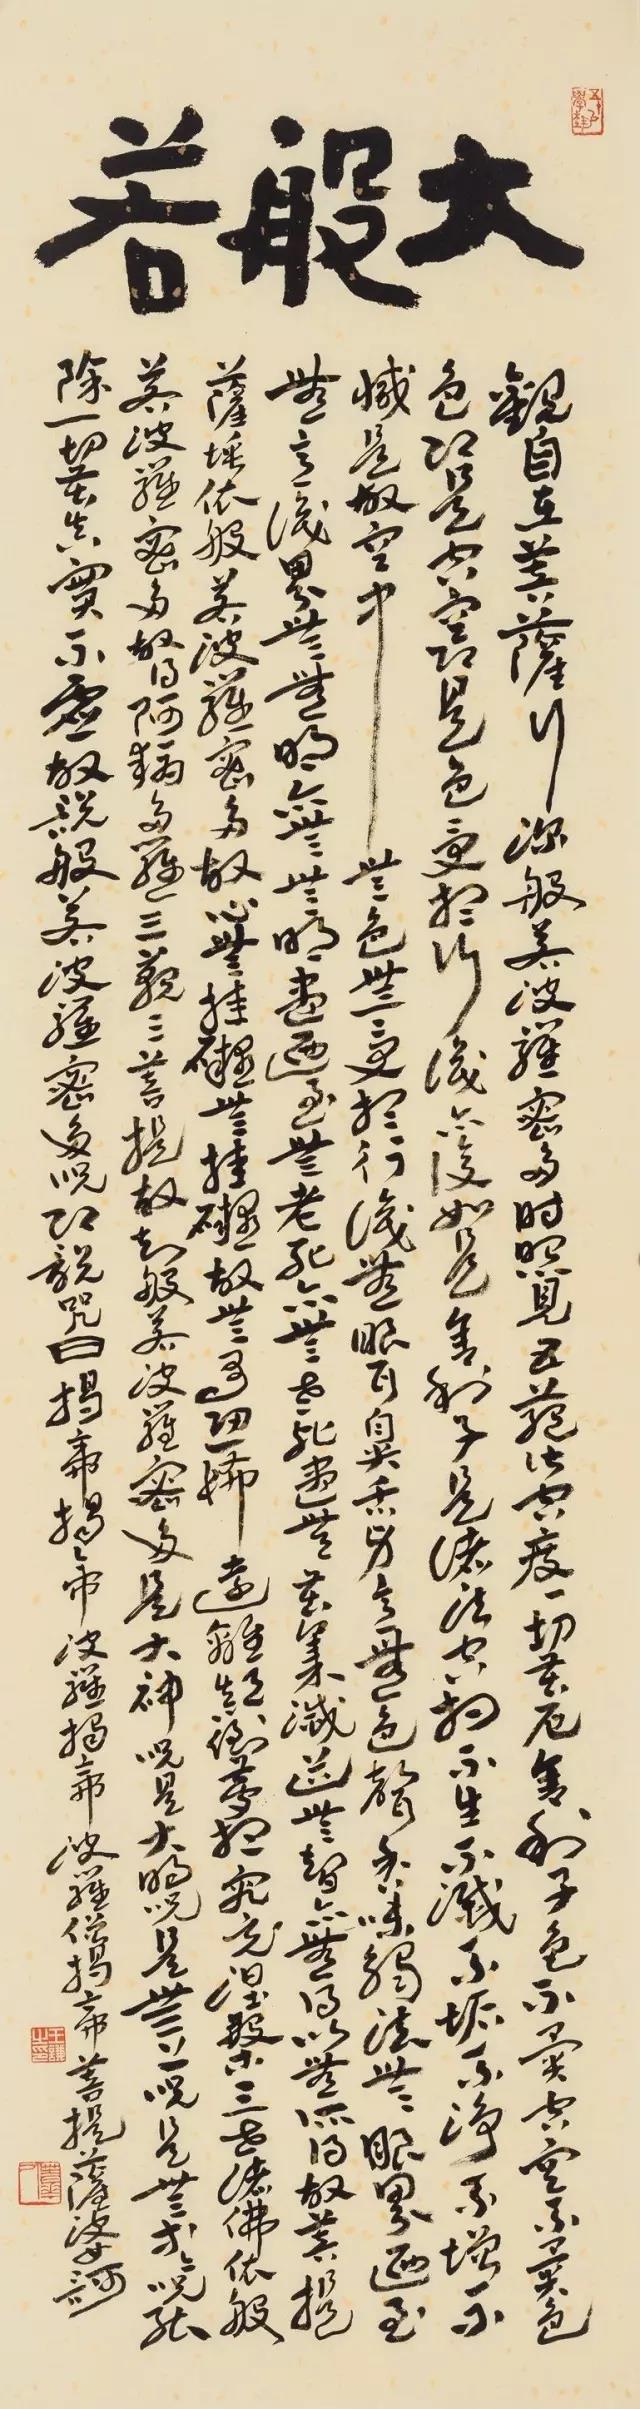 大般若
觀自在菩薩行深般若波羅蜜多時照見五蘊皆空度一切苦厄舍利子色不異空空不異色
色即是空空即是色受想行識亦復如是舍利子是諸法空相不生不滅不垢不淨不增不
減是故空中無色無受想行識無眼耳鼻舌身意無色聲香味觸法無眼界迺至
無意識界無無明亦無無明盡迺至無老死亦無老死盡無苦集滅道無智亦無得以無所得故菩提
薩埵依般若波羅蜜多故心無挂礙無挂礙故無有恐怖遠離顛倒夢想究竟涅槃三世諸佛依般
若波羅蜜多故得阿耨多羅三藐三菩提故知般若波羅蜜多是大神呪是大明呪是無上呪是無等等呪能
除一切苦真實不虛故說般若波羅蜜多呪即說咒曰揭帝揭帝波羅揭帝波羅僧揭帝菩提薩婆訶